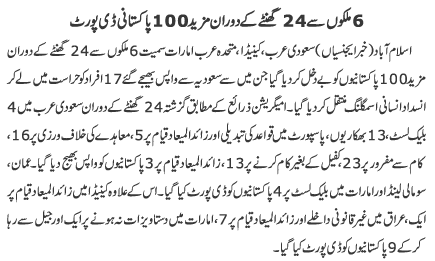 6 ملکوں سے 24 گھنٹے کے دوران مزید 100 پاکستانی ڈی پورٹ
اسلام آباد (خبر ایجنسیاں) سعودی عرب، کینیڈا، متحدہ عرب امارات سمیت 6 ملکوں سے 24 گھنٹے کے دوران
مزید 100 پاکستانیوں کو بے دخل کر دیا گیا جن میں سے سعودیہ سے واپس بھیجے گئے 17 افراد کو حراست میں لے کر
انسداد انسانی اسمگلنگ منتقل کر دیا گیا۔ امیگریشن ذرائع کے مطابق گزشتہ 24 گھنٹے کے دوران سعودی عرب میں 4
بلیک لسٹ، 13 بھکاریوں، پاسپورٹ میں قواعد کی تبدیلی اور زائد المیعاد قیام پر 5، معاہدے کی خلاف ورزی پر 16،
کام سے مفرور پر 23، کفیل کے بغیر کام کرنے پر 13، زائد المیعاد قیام پر 3 پاکستانیوں کو واپس بھیج دیا گیا۔ عمان،
صومالی لینڈ اور امارات میں بلیک لسٹ پر 4 پاکستانیوں کو ڈی پورٹ کیا گیا۔ اس کے علاوہ کینیڈا میں زائد المیعاد قیام پر
ایک، عراق میں غیر قانونی داخلے اور زائد المیعاد قیام پر 7، امارات میں دستاویزات نہ ہونے پر ایک اور جیل سے رہا
کر کے 9 پاکستانیوں کو ڈی پورٹ کیا گیا۔